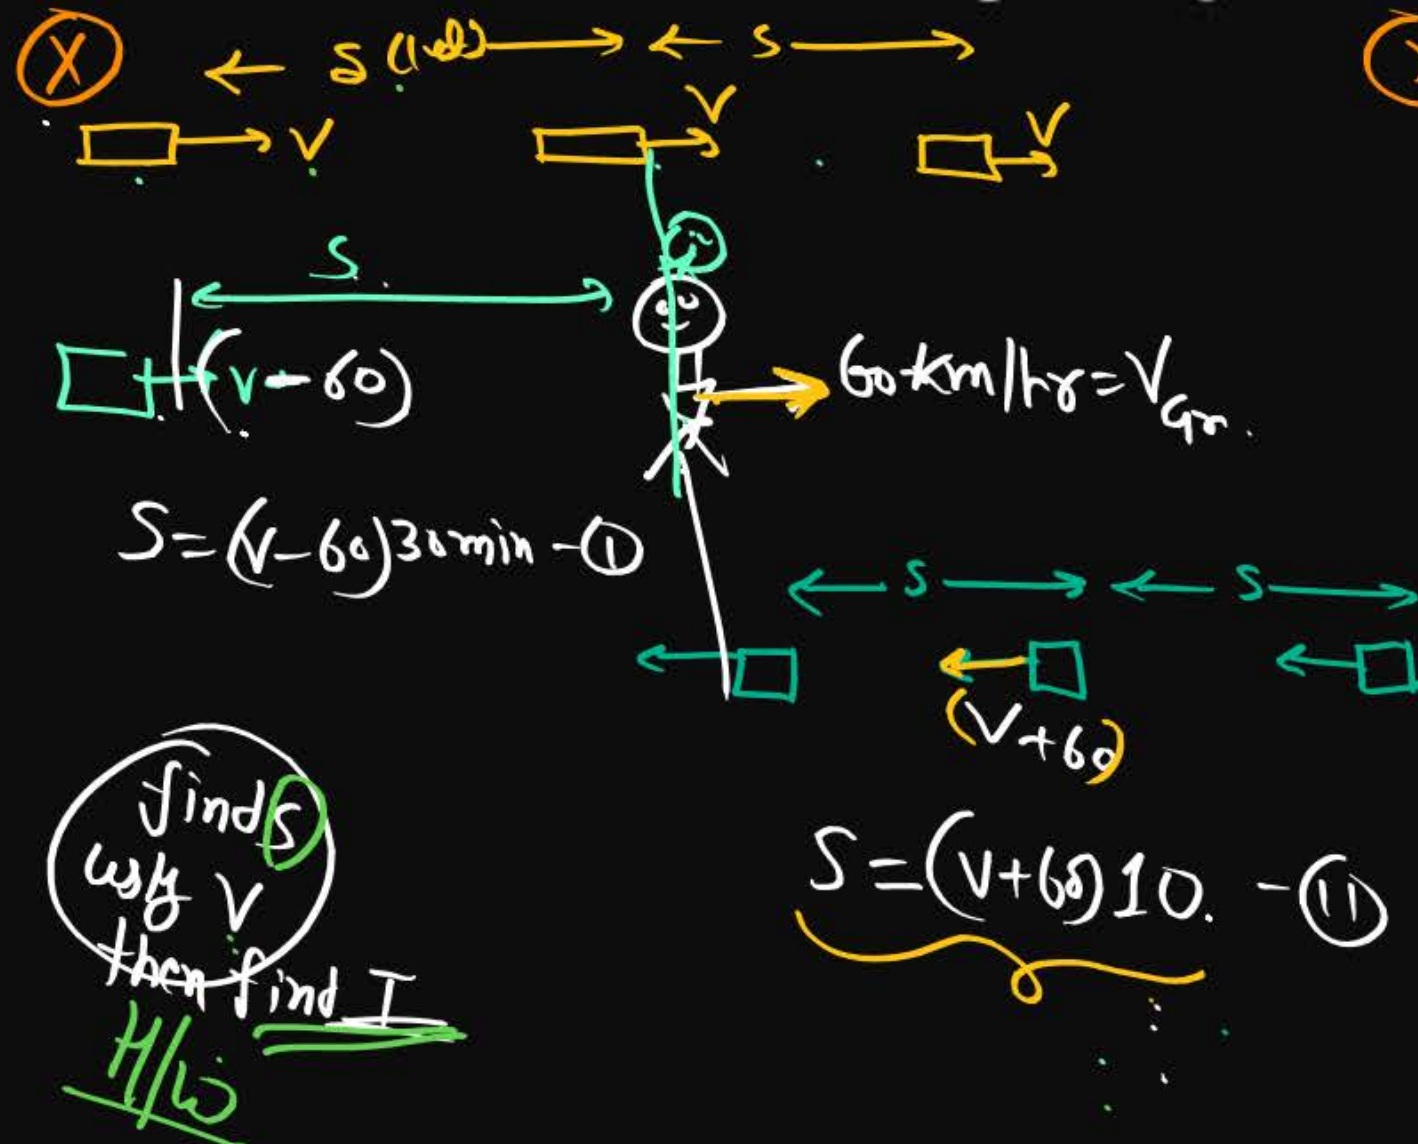 X
S S
V V V
S
(V-60)
60 km/hr = V
S = (V-60) 30 min - ①
S S
(V+60)
find S
V
then find I
H/W
S = (V+60) 10. - ⑪